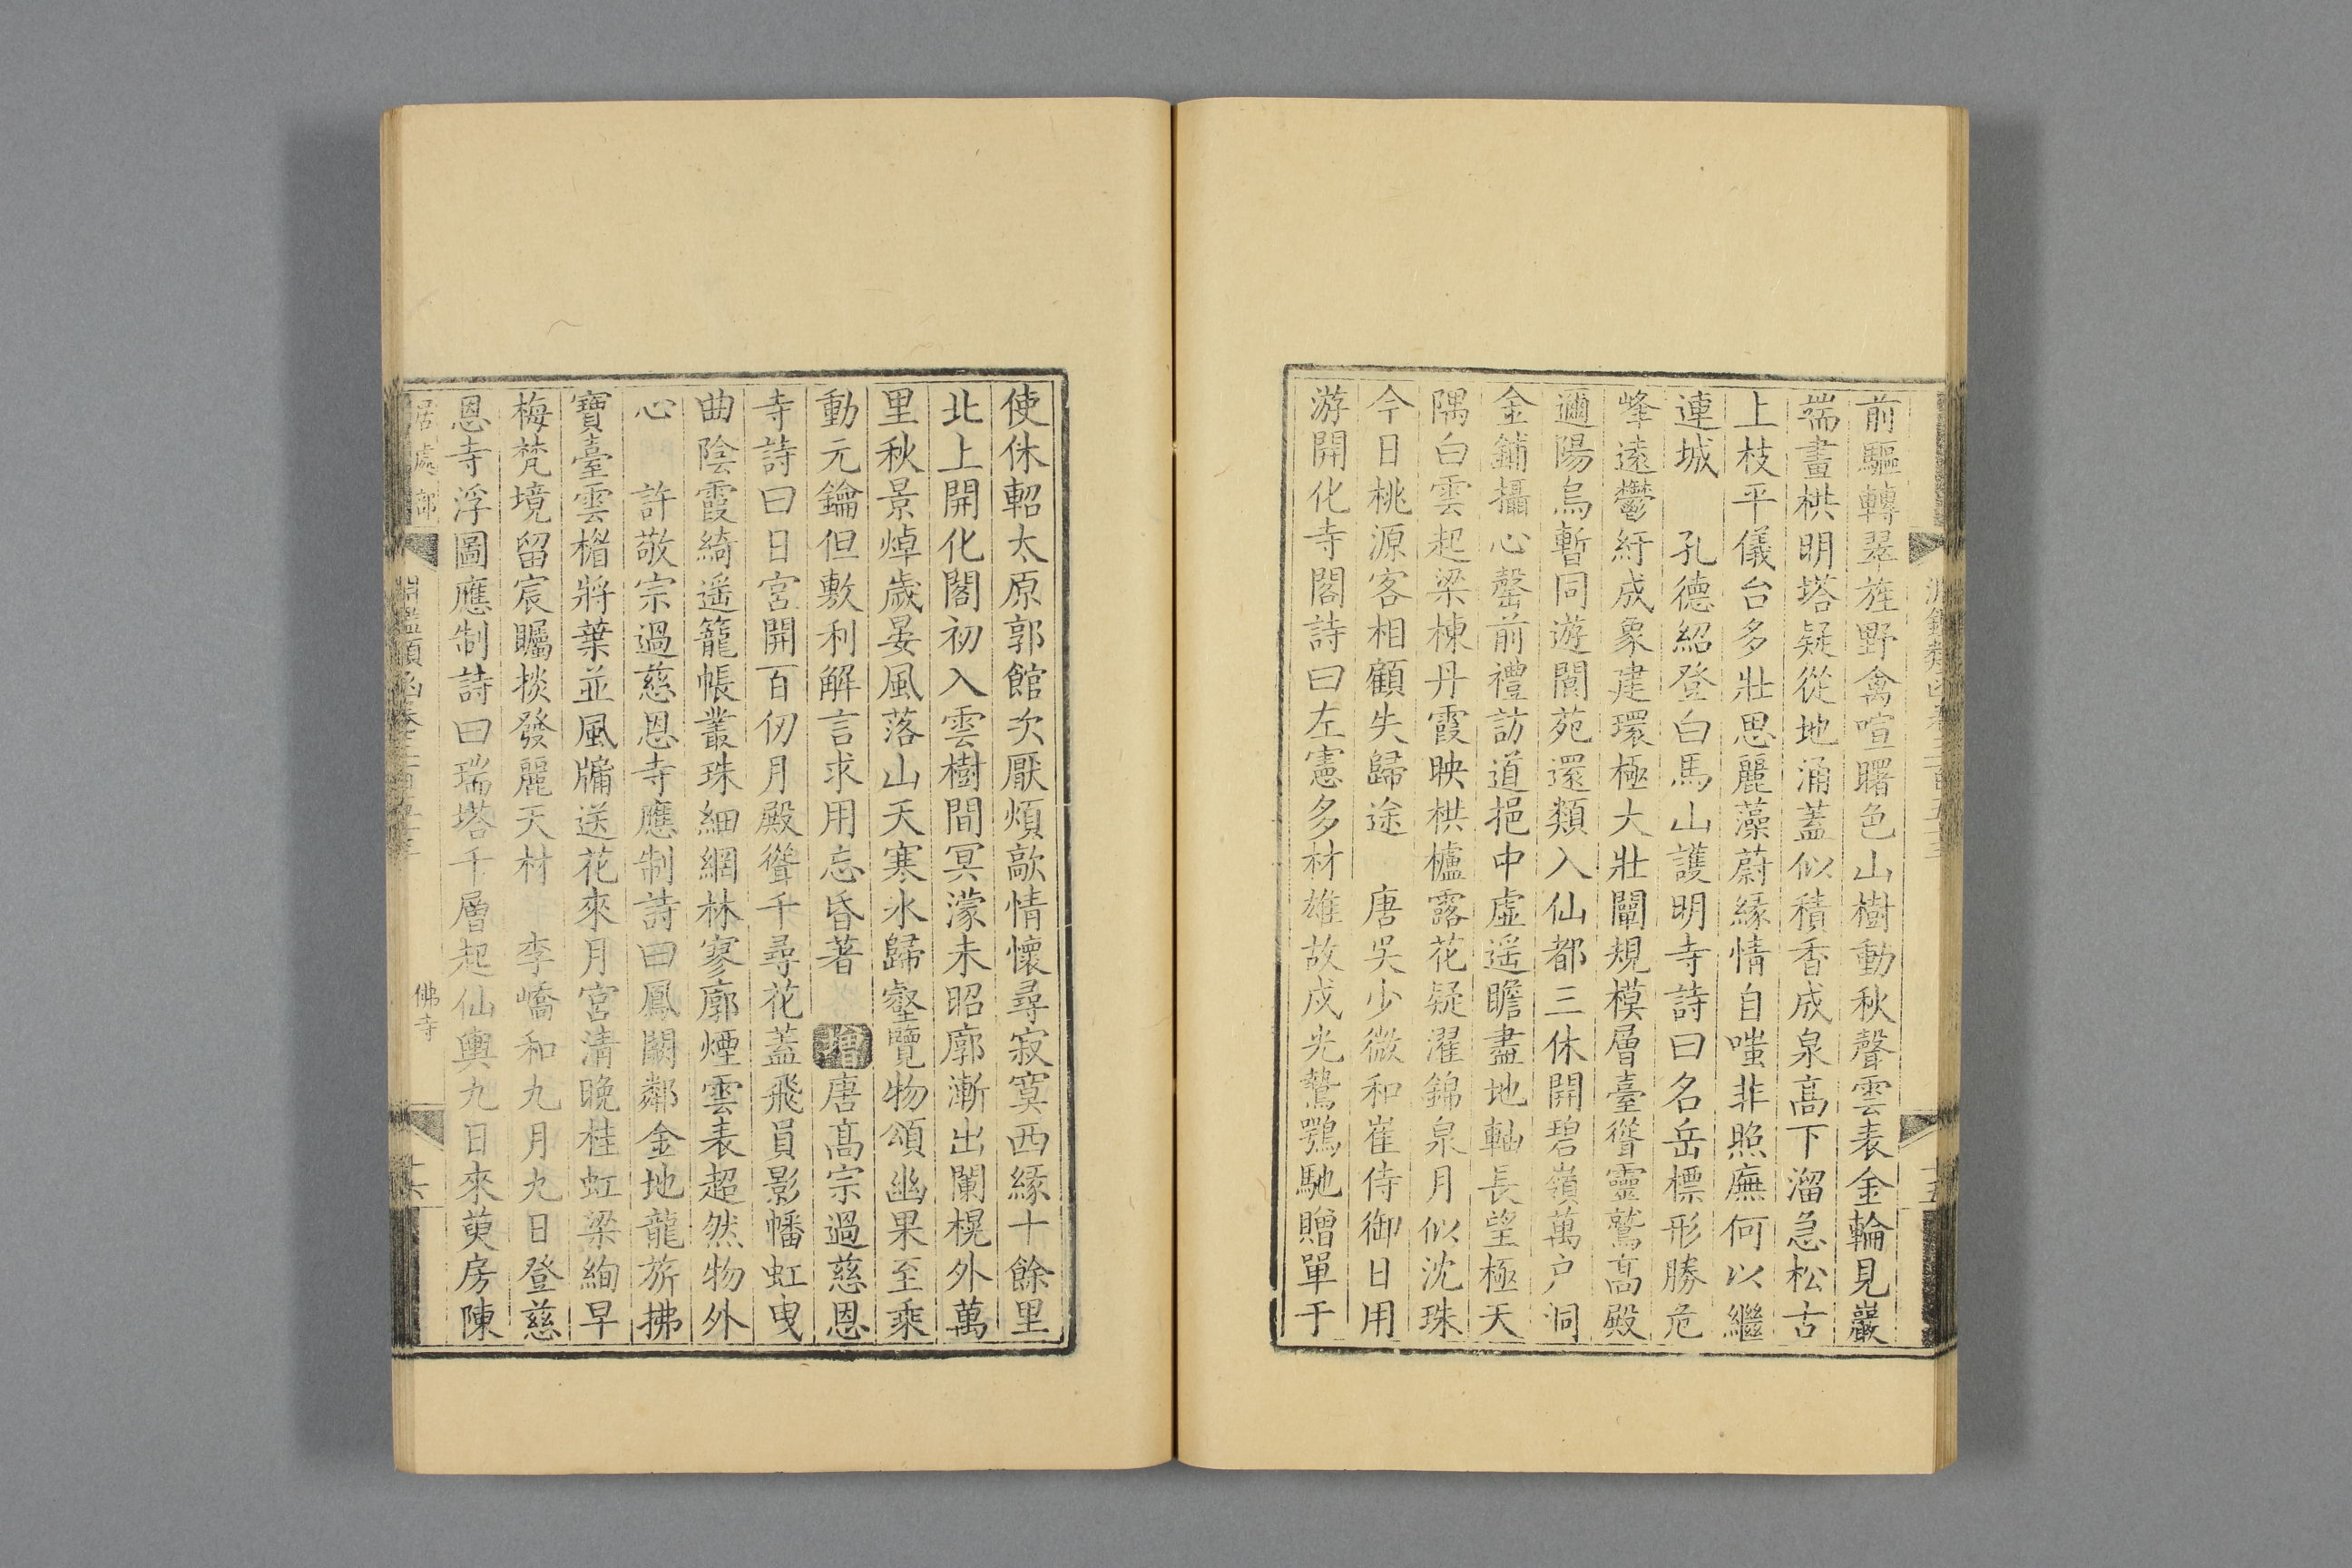 前驅轉翠旌野禽喧曙色山樹動秋聲雲表金輪見巖
端畫栱明塔疑從地涌蓋似積香成泉高下溜急松古
上枝平儀台多壯思麗藻蔚緣情自嗤非照廡何以繼
連城 孔德紹登白馬山護明寺詩曰名岳標形勝危
峰遠鬱紆成象建環極大壯闡規模層臺聳靈鷲高殿
邇陽烏暫同遊閬苑還類入仙都三休開碧嶺萬户洞
金鋪攝心罄前禮訪道挹中虛遥瞻盡地軸長望極天
隅白雲起梁棟丹霞映栱櫨露花疑濯錦泉月似沈珠
今日桃源客相顧失歸途 唐吳少微和崔侍御日用
游開化寺閣詩曰左憲多材雄故戍光鷙鶚馳贈單于
使休軺太原郭館次厭煩歊情懷尋寂寞西緣十餘里
北上開化閣初入雲樹間冥濛未昭廓漸出闌榥外萬
里秋景焯歲晏風落山天寒水歸壑覽物頌幽果至乘
動元鑰但敷利解言求用忘昏著 增唐高宗過慈恩
寺詩曰日宮開百仞月殿聳千尋花蓋飛員影幡虹曳
曲陰霞綺遥籠帳叢珠細網林寥廓煙雲表超然物外
心 許敬宗過慈恩寺應制詩曰鳳闕鄰金地龍旂拂
寶臺雲楣將葉並風牖送花來月宮清晚桂虹梁絢早
梅梵境留宸矚掞發麗天材 李嶠和九月九日登慈
恩寺浮圖應制詩曰瑞塔千層起仙輿九日來萸房陳
居處部 淵鑑類函卷三百五十三 佛寺 十六